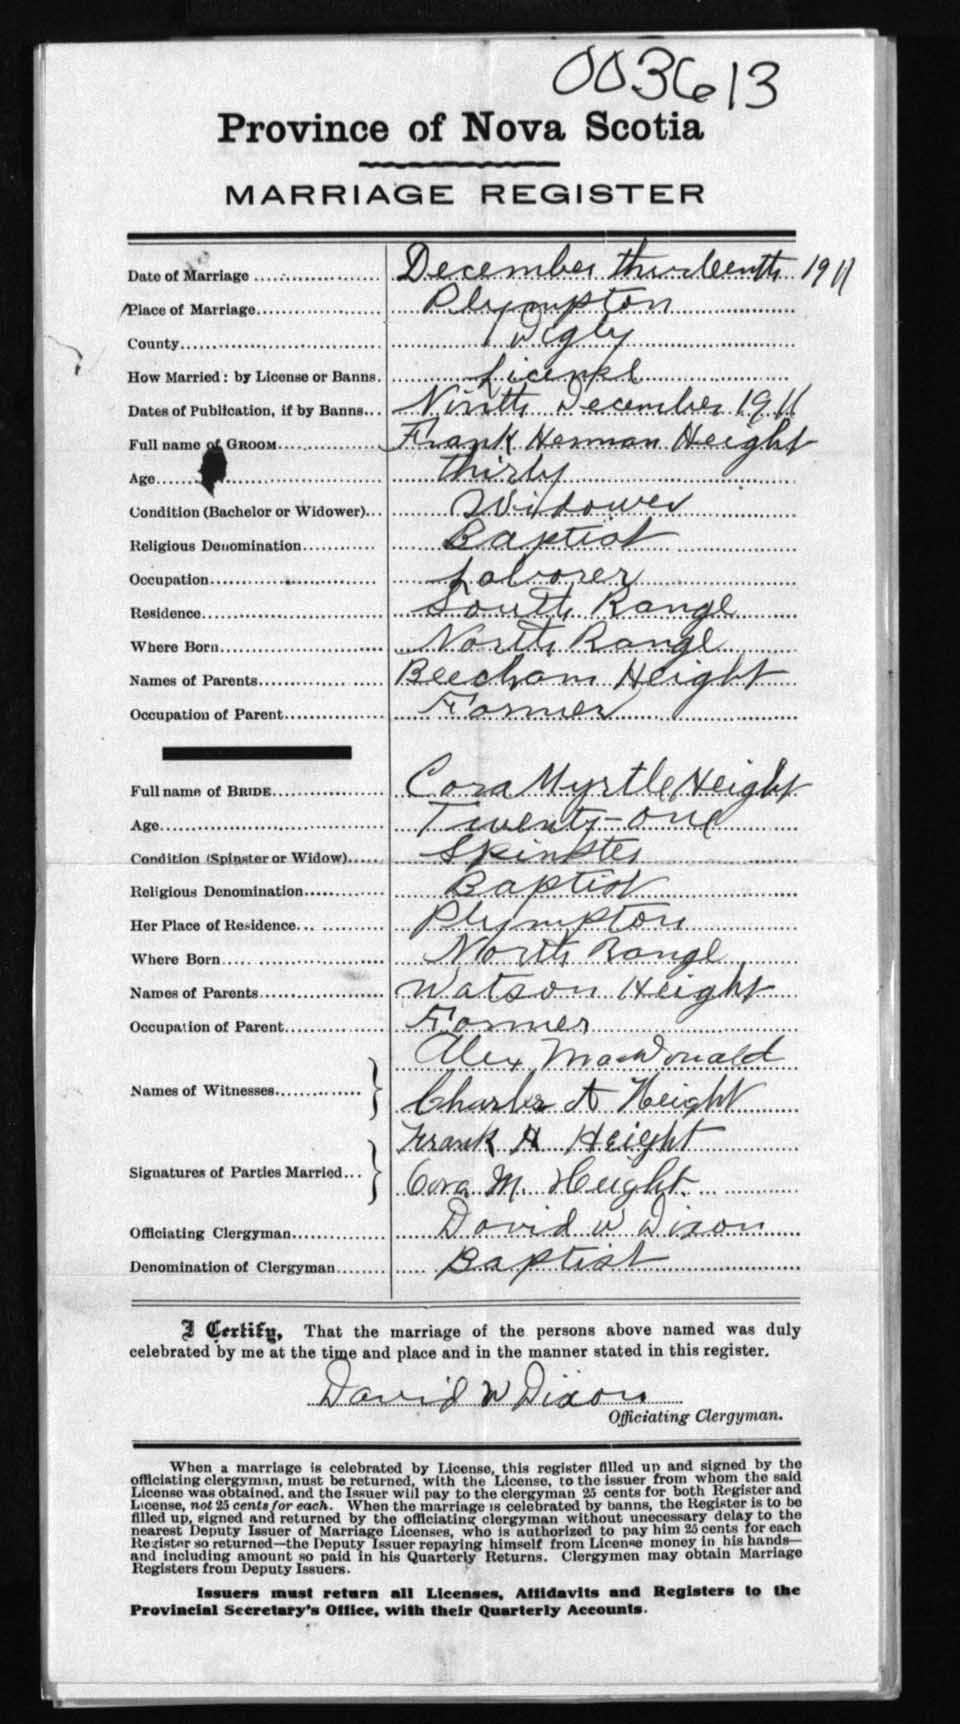 003613
Province of Nova Scotia
MARRIAGE REGISTER
Date of Marriage December thirteenth 1911
Place of Marriage Plympton
County Digby
How Married: by License or Banns. License
Dates of Publication, if by Banns Ninth December 1911
Full name of GROOM Frank Herman Height
Age thirty
Condition (Bachelor or Widower) Widower
Religious Denomination Baptist
Occupation Laborer
Residence South Range
Where Born North Range
Names of Parents Beecham Height
Occupation of Parent Farmer
Full name of BRIDE Cora Myrtle Height
Age Twenty-one
Condition (Spinster or Widow) Spinster
Religious Denomination Baptist
Her Place of Residence Plympton
Where Born North Range
Names of Parents Watson Height
Occupation of Parent Farmer
Alex MacDonald
Names of Witnesses
Charles A Height
Frank H Height
Signatures of Parties Married
Cora M. Height.
Officiating Clergyman David W Dixon
Denomination of Clergyman Baptist
I Certify, That the marriage of the persons above named was duly
celebrated by me at the time and place and in the manner stated in this register.
David W Dixon
Officiating Clergyman.
When a marriage is celebrated by License, this register filled up and signed by the
officiating clergyman, must be returned, with the License, to the issuer from whom the said
License was obtained, and the Issuer will pay to the clergyman 25 cents for both Register and
License, not 25 cents for each. When the marriage is celebrated by banns, the Register is to be
filled up, signed and returned by the officiating clergyman without unecessary delay to the
nearest Deputy Issuer of Marriage Licenses, who is authorized to pay him 25 cents for each
Register so returned—the Deputy Issuer repaying himself from License money in his hands—
and including amount so paid in his Quarterly Returns. Clergymen may obtain Marriage
Registers from Deputy Issuers.
Issuers must return all Licenses, Affidavits and Registers to the
Provincial Secretary's Office, with their Quarterly Accounts.